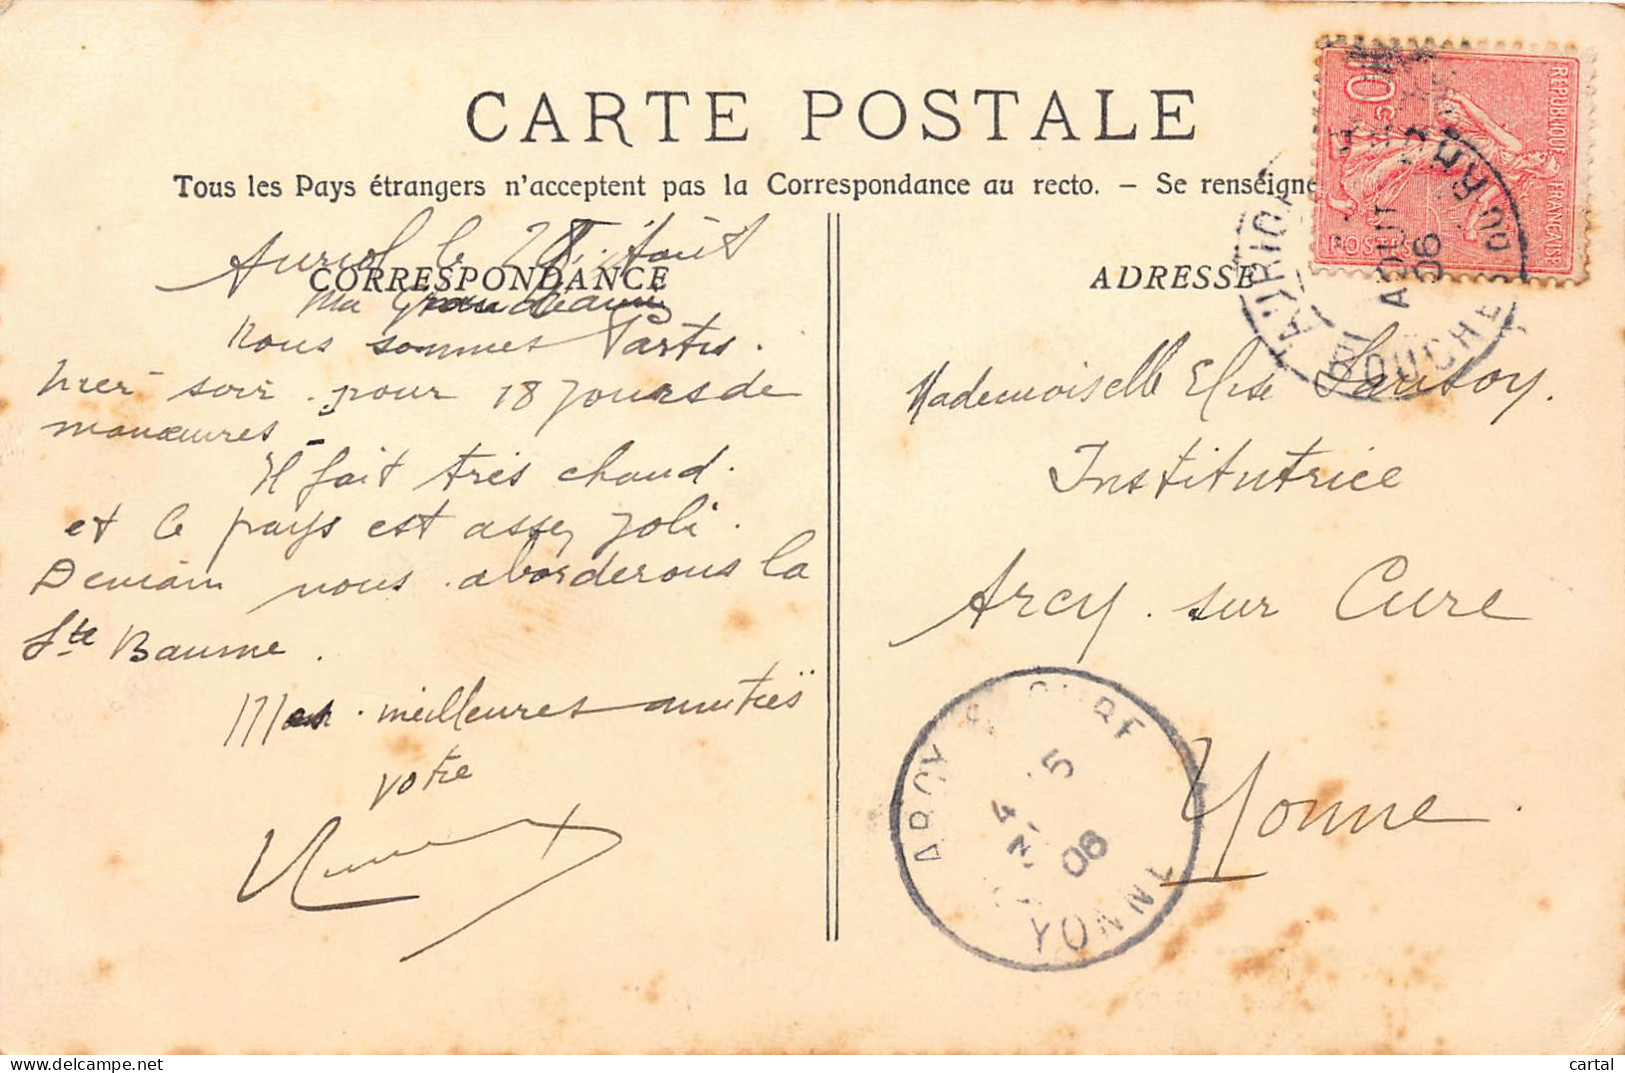 CARTE POSTALE
Tous les Pays étrangers n'acceptent pas la Correspondance au recto. — Se renseigne
CORRESPONDANCE
Auriol le 28 Août
Ma
Nous sommes Partis.
hier soir. pour 18 jours de
manœuvres
Il fait très chaud.
et le pays est assez joli.
Demain nous aborderons la
Ste Baume.
Mes meilleures amitiés
votre
ADRESSE
Mademoiselle Elise
Institutrice
Arcy. sur Cure
Yonne.
10c
REPUBLIQUE FRANÇAISE
POSTES
AURIOL
AOUT
06
BOUCHES DU RH
ARCY S CURE
5
06
YONNE
cartal